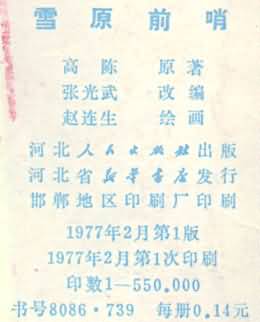 雪原前哨
高陈 原著
张光武 改编
赵连生 绘画
河北人民出版社出版
河北省新华书店发行
邯郸地区印刷厂印刷
1977年2月第1版
1977年2月第1次印刷
印数1—550.000
书号8086·739 每册0.14元